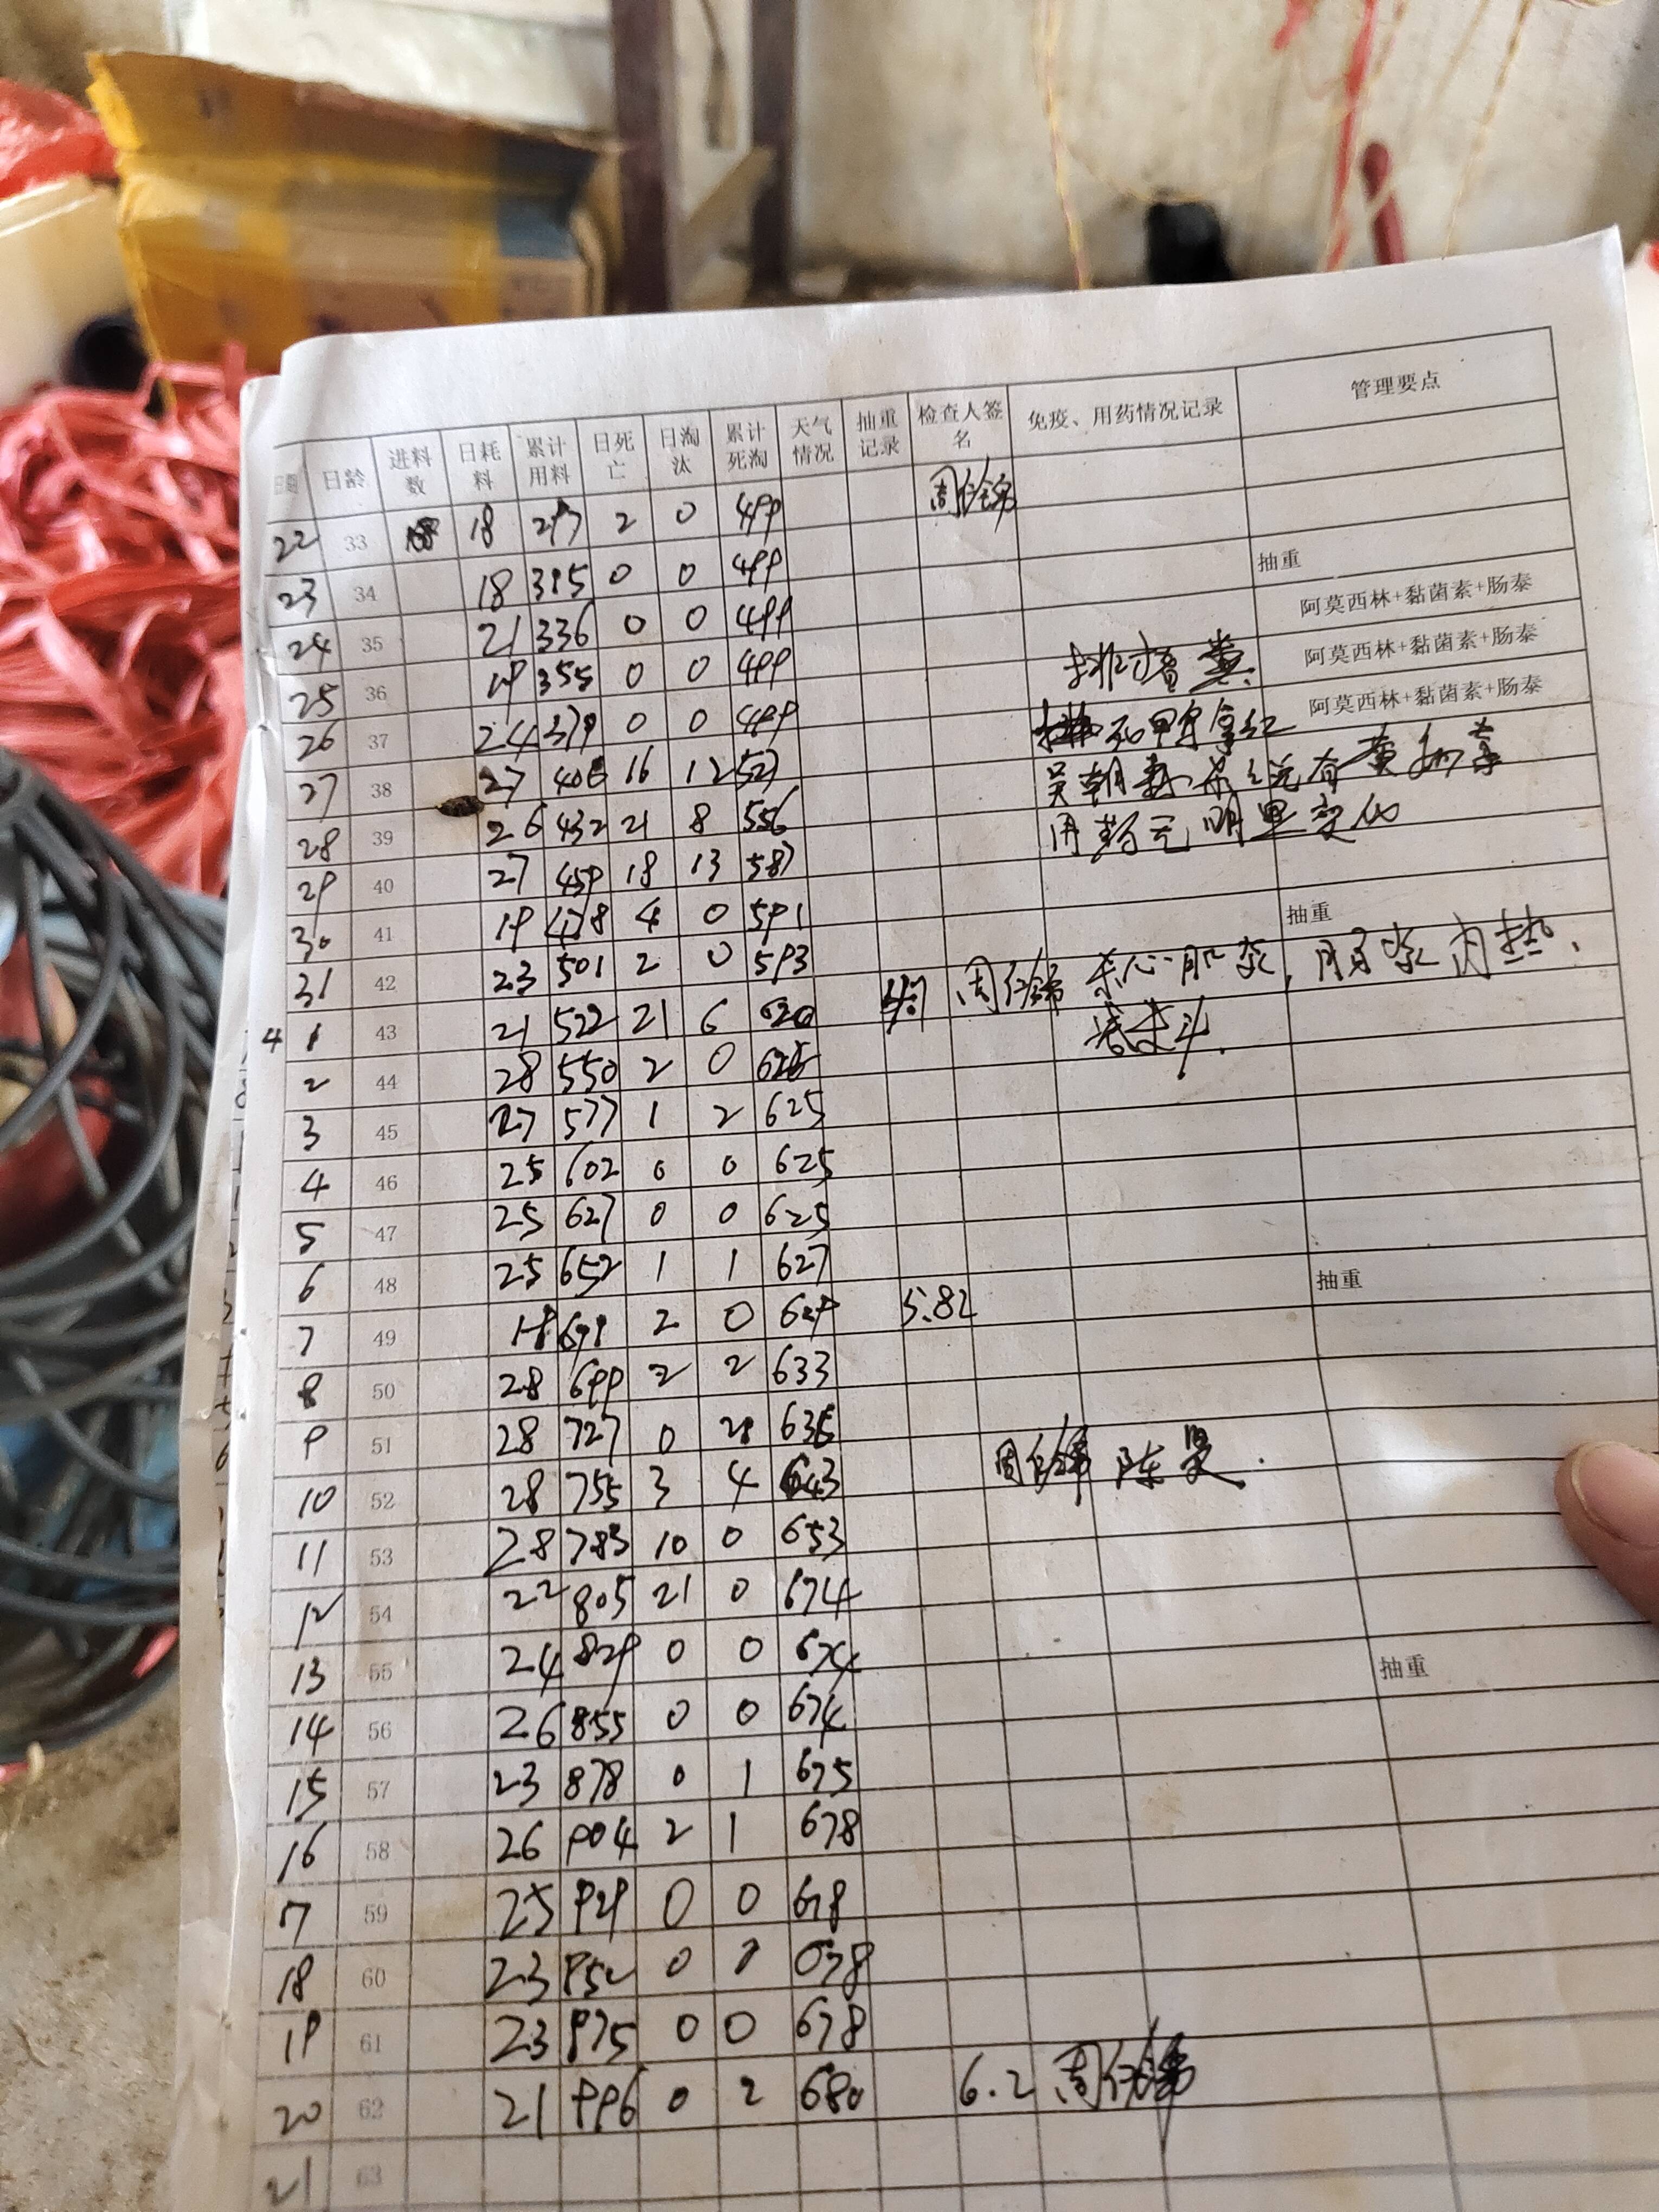 日期 日龄 进料数 日耗料 累计用料 日死亡 日淘汰 累计死淘 天气情况 抽重记录 检查人签名 免疫、用药情况记录 管理要点
22 33 18 297 2 0 499
23 34 18 315 0 0 499 抽重
24 35 21 336 0 0 499 阿莫西林+黏菌素+肠泰
25 36 19 355 0 0 499 阿莫西林+黏菌素+肠泰
26 37 24 379 0 0 499 阿莫西林+黏菌素+肠泰
27 38 27 406 16 12 527
28 39 26 432 21 8 556
29 40 27 459 18 13 587
30 41 19 478 4 0 591 抽重
31 42 23 501 2 0 593
4 1 43 21 522 21 6 620
2 44 28 550 2 0
3 45 27 577 1 2 625
4 46 25 602 0 0 625
5 47 25 627 0 0 625
6 48 25 652 1 1 627 抽重
7 49 2 0 629 5.82
8 50 28 699 2 2 633
9 51 28 727 0 636
10 52 28 755 3 4 643
11 53 28 783 10 0 653
12 54 22 805 21 0 674
13 55 24 829 0 0 674 抽重
14 56 26 855 0 0 674
15 57 23 878 0 1 675
16 58 26 904 2 1 678
17 59 25 929 0 0 678
18 60 23 952 0 678
19 61 23 975 0 0 678
20 62 21 996 0 2 680 6.2
21 63